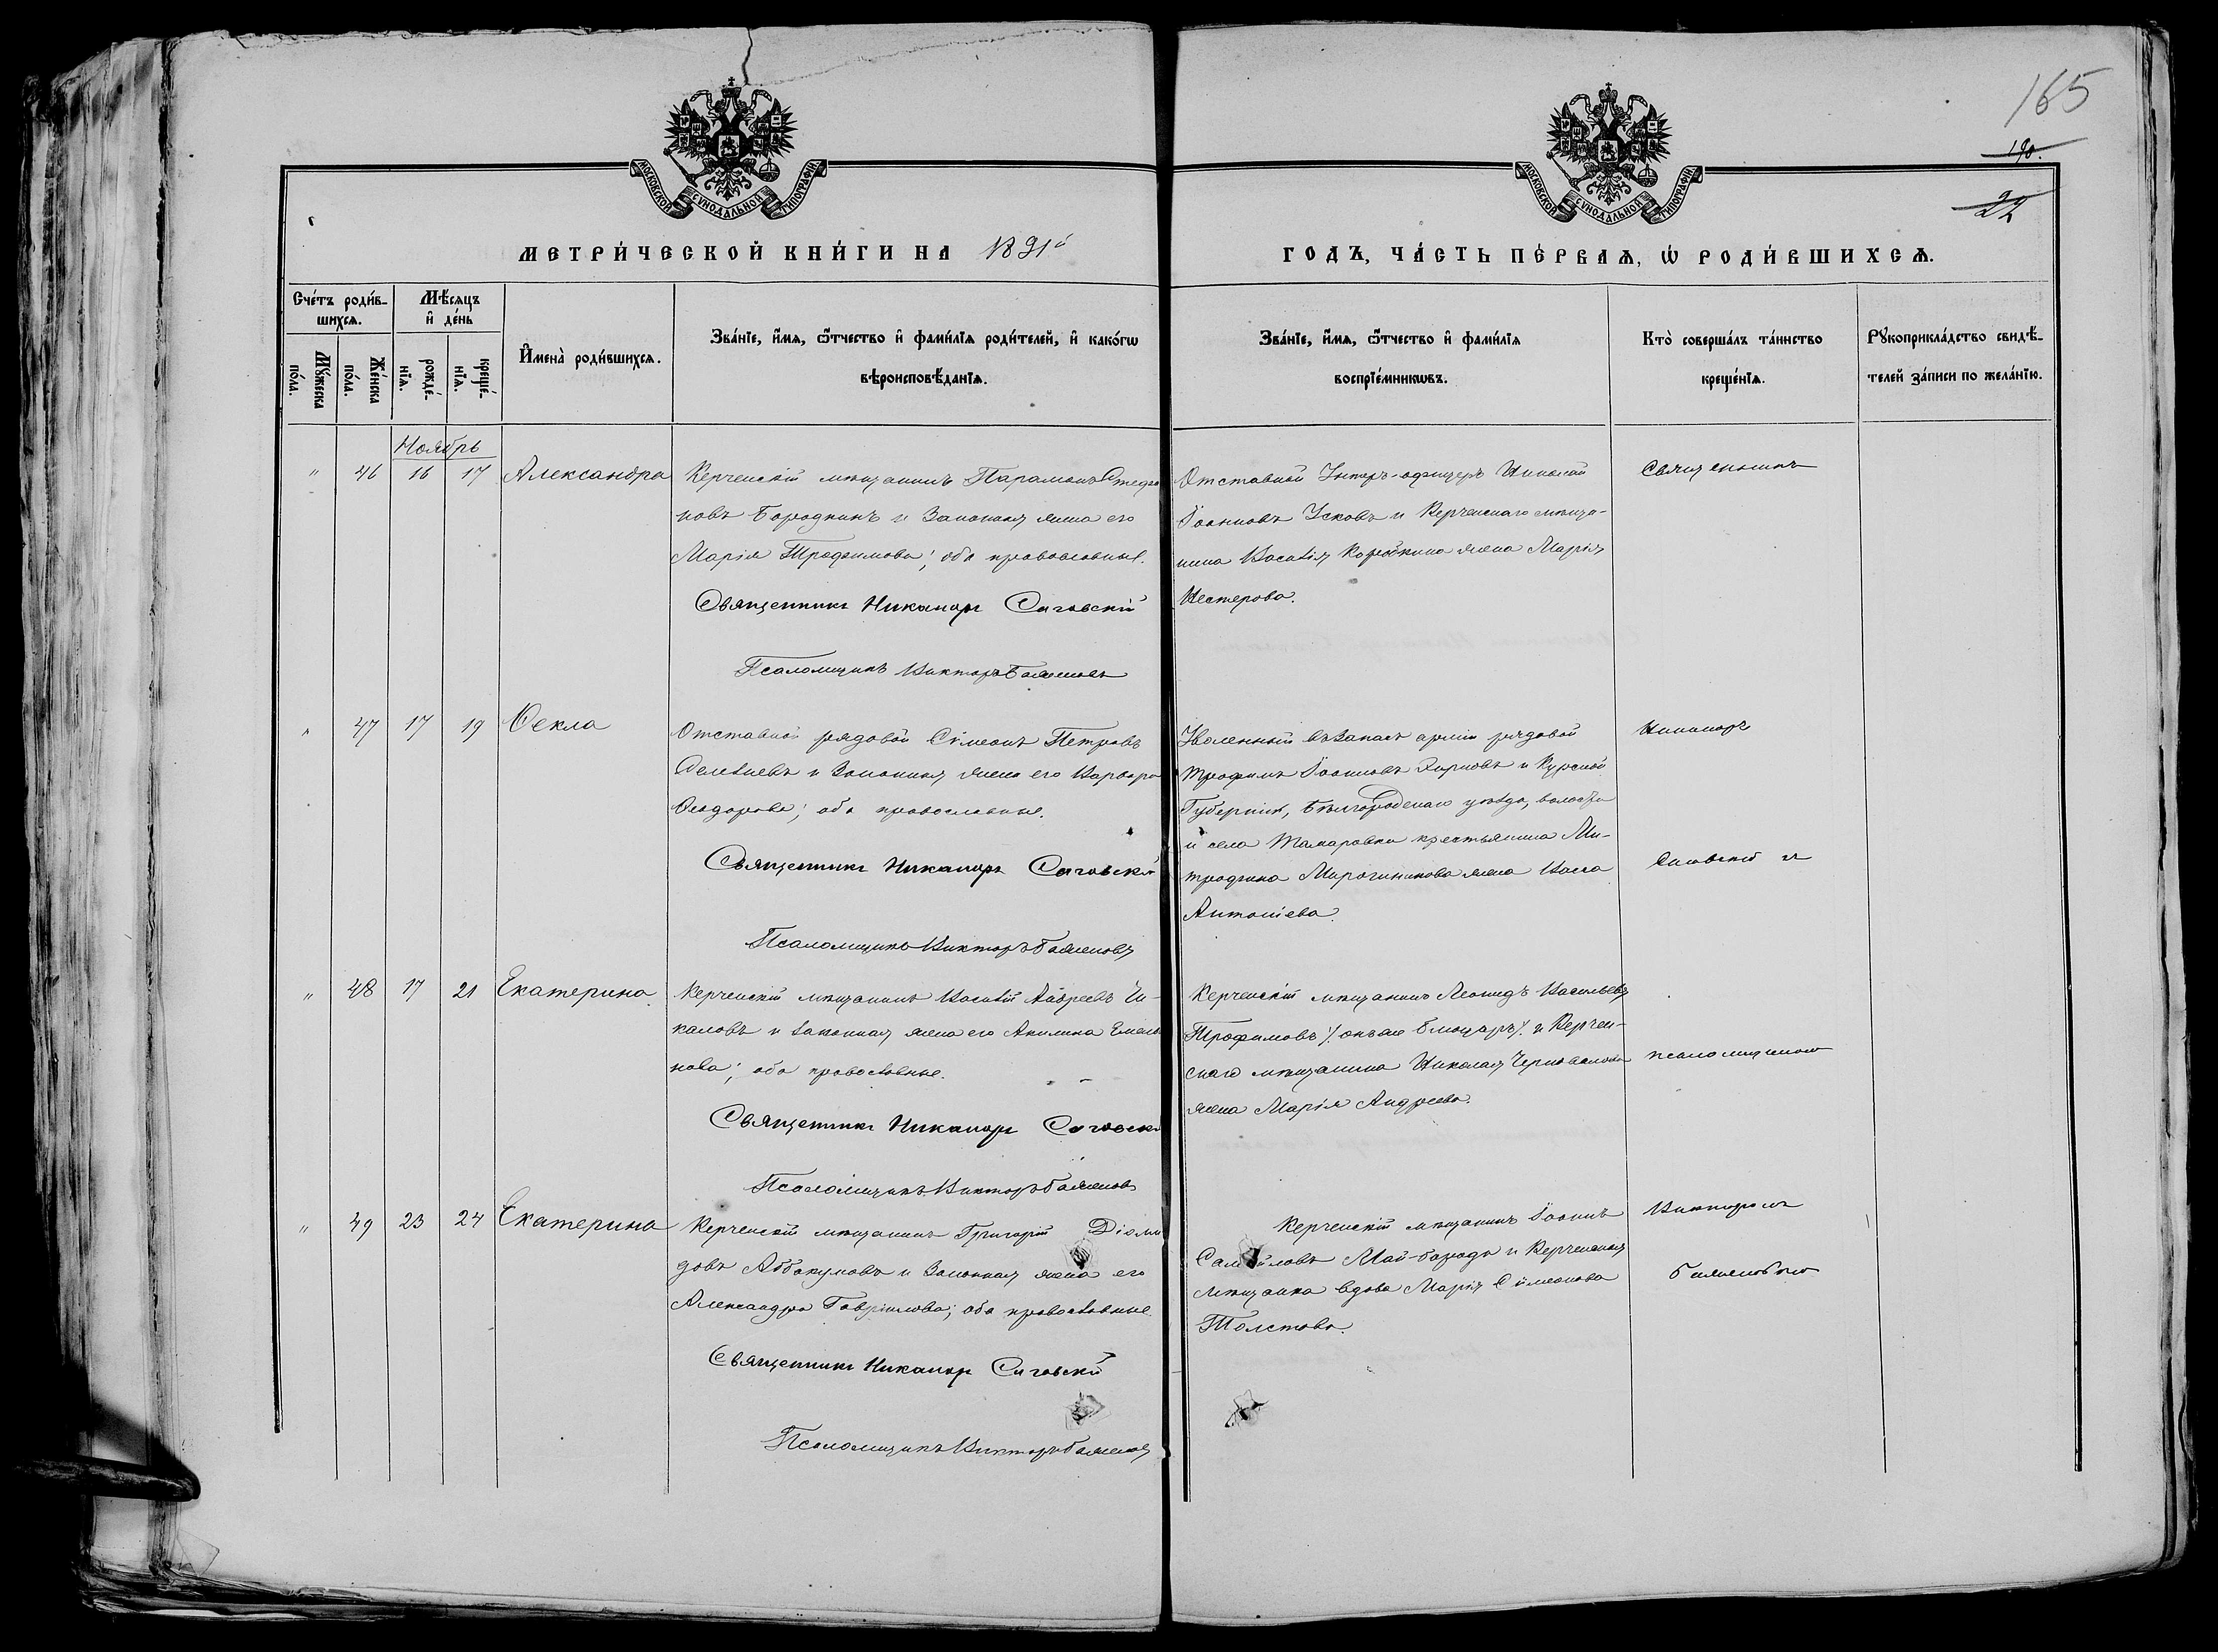 165
190.
22
МОСКОВСКОЙ СѴНОДАЛЬНОЙ ТИПОГРАФІИ
МОСКОВСКОЙ СѴНОДАЛЬНОЙ ТИПОГРАФІИ
МЕТРИ́ЧЕСКОЙ КНИ́ГИ НА 1891й
ГОДЪ, ЧА́СТЬ ПЕ́РВАѦ, Ѡ҆ РОДИ́ВШИХСѦ.
Сче́тъ роди́в-
шихсѧ.
Мꙋ́жеска
по́ла.
Же́нска
по́ла.
Мѣ́сѧцъ
и҆ де́нь
рожде́-
нїѧ.
креще́-
нїѧ.
И҆мена̀ роди́вшихсѧ.
Зва́нїе, и҆́мѧ, ѻ҆́тчество и҆ фами́лїѧ роди́телей, и҆ како́гѡ
вѣроисповѣ́данїѧ.
Зва́нїе, и҆́мѧ, ѻ҆́тчество и҆ фами́лїѧ
воспрїе́мникѡвъ.
Кто̀ соверша́лъ та́инство
креще́нїѧ.
Рꙋкоприкла́дство свидѣ́-
телей за́писи по жела́нїю.
Ноябрь
" 46 16 17 Александра
Керченскій мѣщанинъ Парамонъ Стефа
новъ Бородкинъ и Законная жена его
Марія Трофимова; оба православные.
Священникъ Никаноръ Сиговскій
Псаломщикъ Викторъ Баженовъ
Отставной Унтеръ-офицеръ Николай
Іоанновъ Усковъ и Керченскаго мѣща-
нина Василія Коробкина жена Марія
Нестерова.
Священникъ
" 47 17 19 Ѳекла
Отставной рядовой Сѵмеонъ Петровъ
и Законная жена его Варвара
Ѳеодорова; оба православные.
Священникъ Никаноръ Сиговскій
Псаломщикъ Викторъ Баженовъ
Уволенный въ Запасъ арміи рядовой
Трофимъ Іоанновъ и Курской
Губерніи, Бѣлгородскаго уѣзда, волости
и села Томаровки крестьянина Ми-
трофана жена
Антоніева.
Никаноръ
Сиговскій и
" 48 17 21 Екатерина
Керченскій мѣщанинъ Василій Андреевъ Чи-
каловъ и Законная жена его Акилина Емель
нова; оба православные.
Священникъ Никаноръ Сиговскі
Псаломщикъ Викторъ Баженовъ
Керченскій мѣщанинъ Леонидъ Васильевъ
Трофимовъ /: онъ же :/ и Керчен-
скаго мѣщанина Николая
жена Марія Андреева.
псаломщикомъ
" 49 23 24 Екатерина
Керченскій мѣщанинъ Григорій Діоми
довъ Аввакумовъ и Законная жена его
Александра Гавріилова; оба православные.
Священникъ Никаноръ Сиговскій
Псаломщикъ Викторъ Баженовъ
Керченскій мѣщанинъ Іоаннъ
Самойловъ Май-борода и Керченская
мѣщанка вдова Марія Сѵмеонова
Толстова.
Викторомъ
Баженовымъ